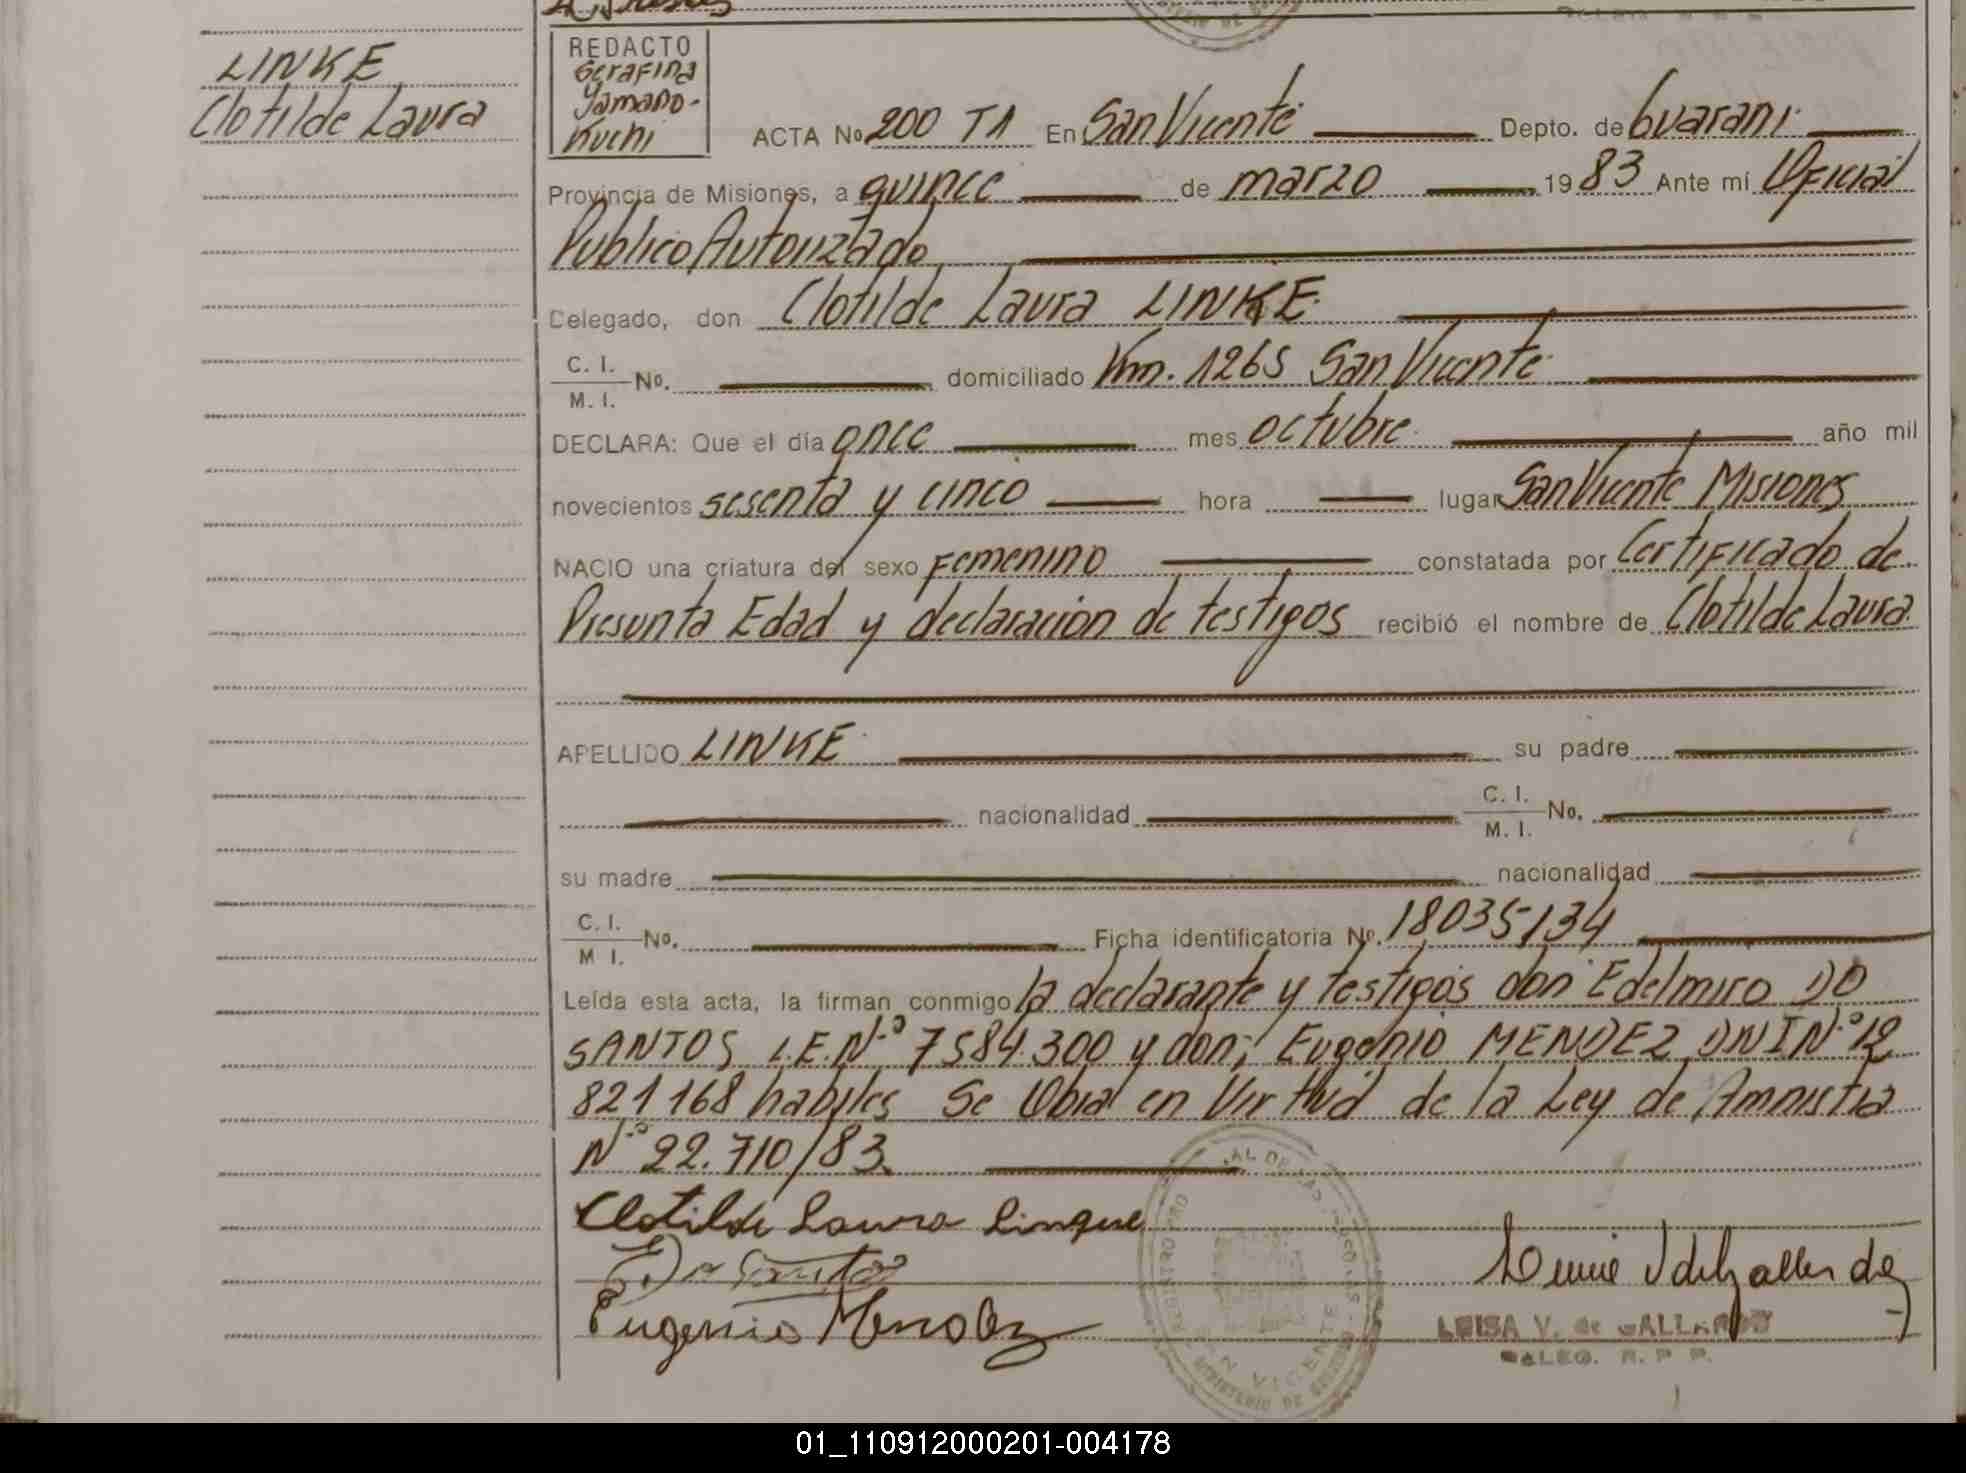 LINKE
Clotilde Laura
REDACTO
Serafina
Yamano-
kuchi
ACTA No. 200 T1 En San Vicente Depto. de Guarani
Provincia de Misiones, a quince de marzo 1983 Ante mí Oficial
Publico Autorizado
Delegado, don Clotilde Laura LINKE
C. I.
M. I. No. domiciliado Km. 1265 San Vicente
DECLARA: Que el día once mes octubre año mil
novecientos sesenta y cinco hora lugar San Vicente Misiones
NACIO una criatura del sexo Femenino constatada por Certificado de
Presunta Edad y declaracion de testigos recibió el nombre de Clotilde Laura
APELLIDO LINKE su padre
nacionalidad C. I.
M. I. No.
su madre nacionalidad
C. I.
M I. No. Ficha identificatoria No. 18035134
Leída esta acta, la firman conmigo la declarante y testigos don Edelmiro DO
SANTOS L.E.N.° 7584.300 y don; Eugenio MENDEZ DNI N.° 12
821168 habiles Se Obra en Virtud de la Ley de Amnistia
N.° 22.710/83
Clotilde Laura Lingue
Eugenio Mendez
LUISA V. de GALLARDO
DELEG. R. P. P.
SAN VICENTE
01_110912000201-004178